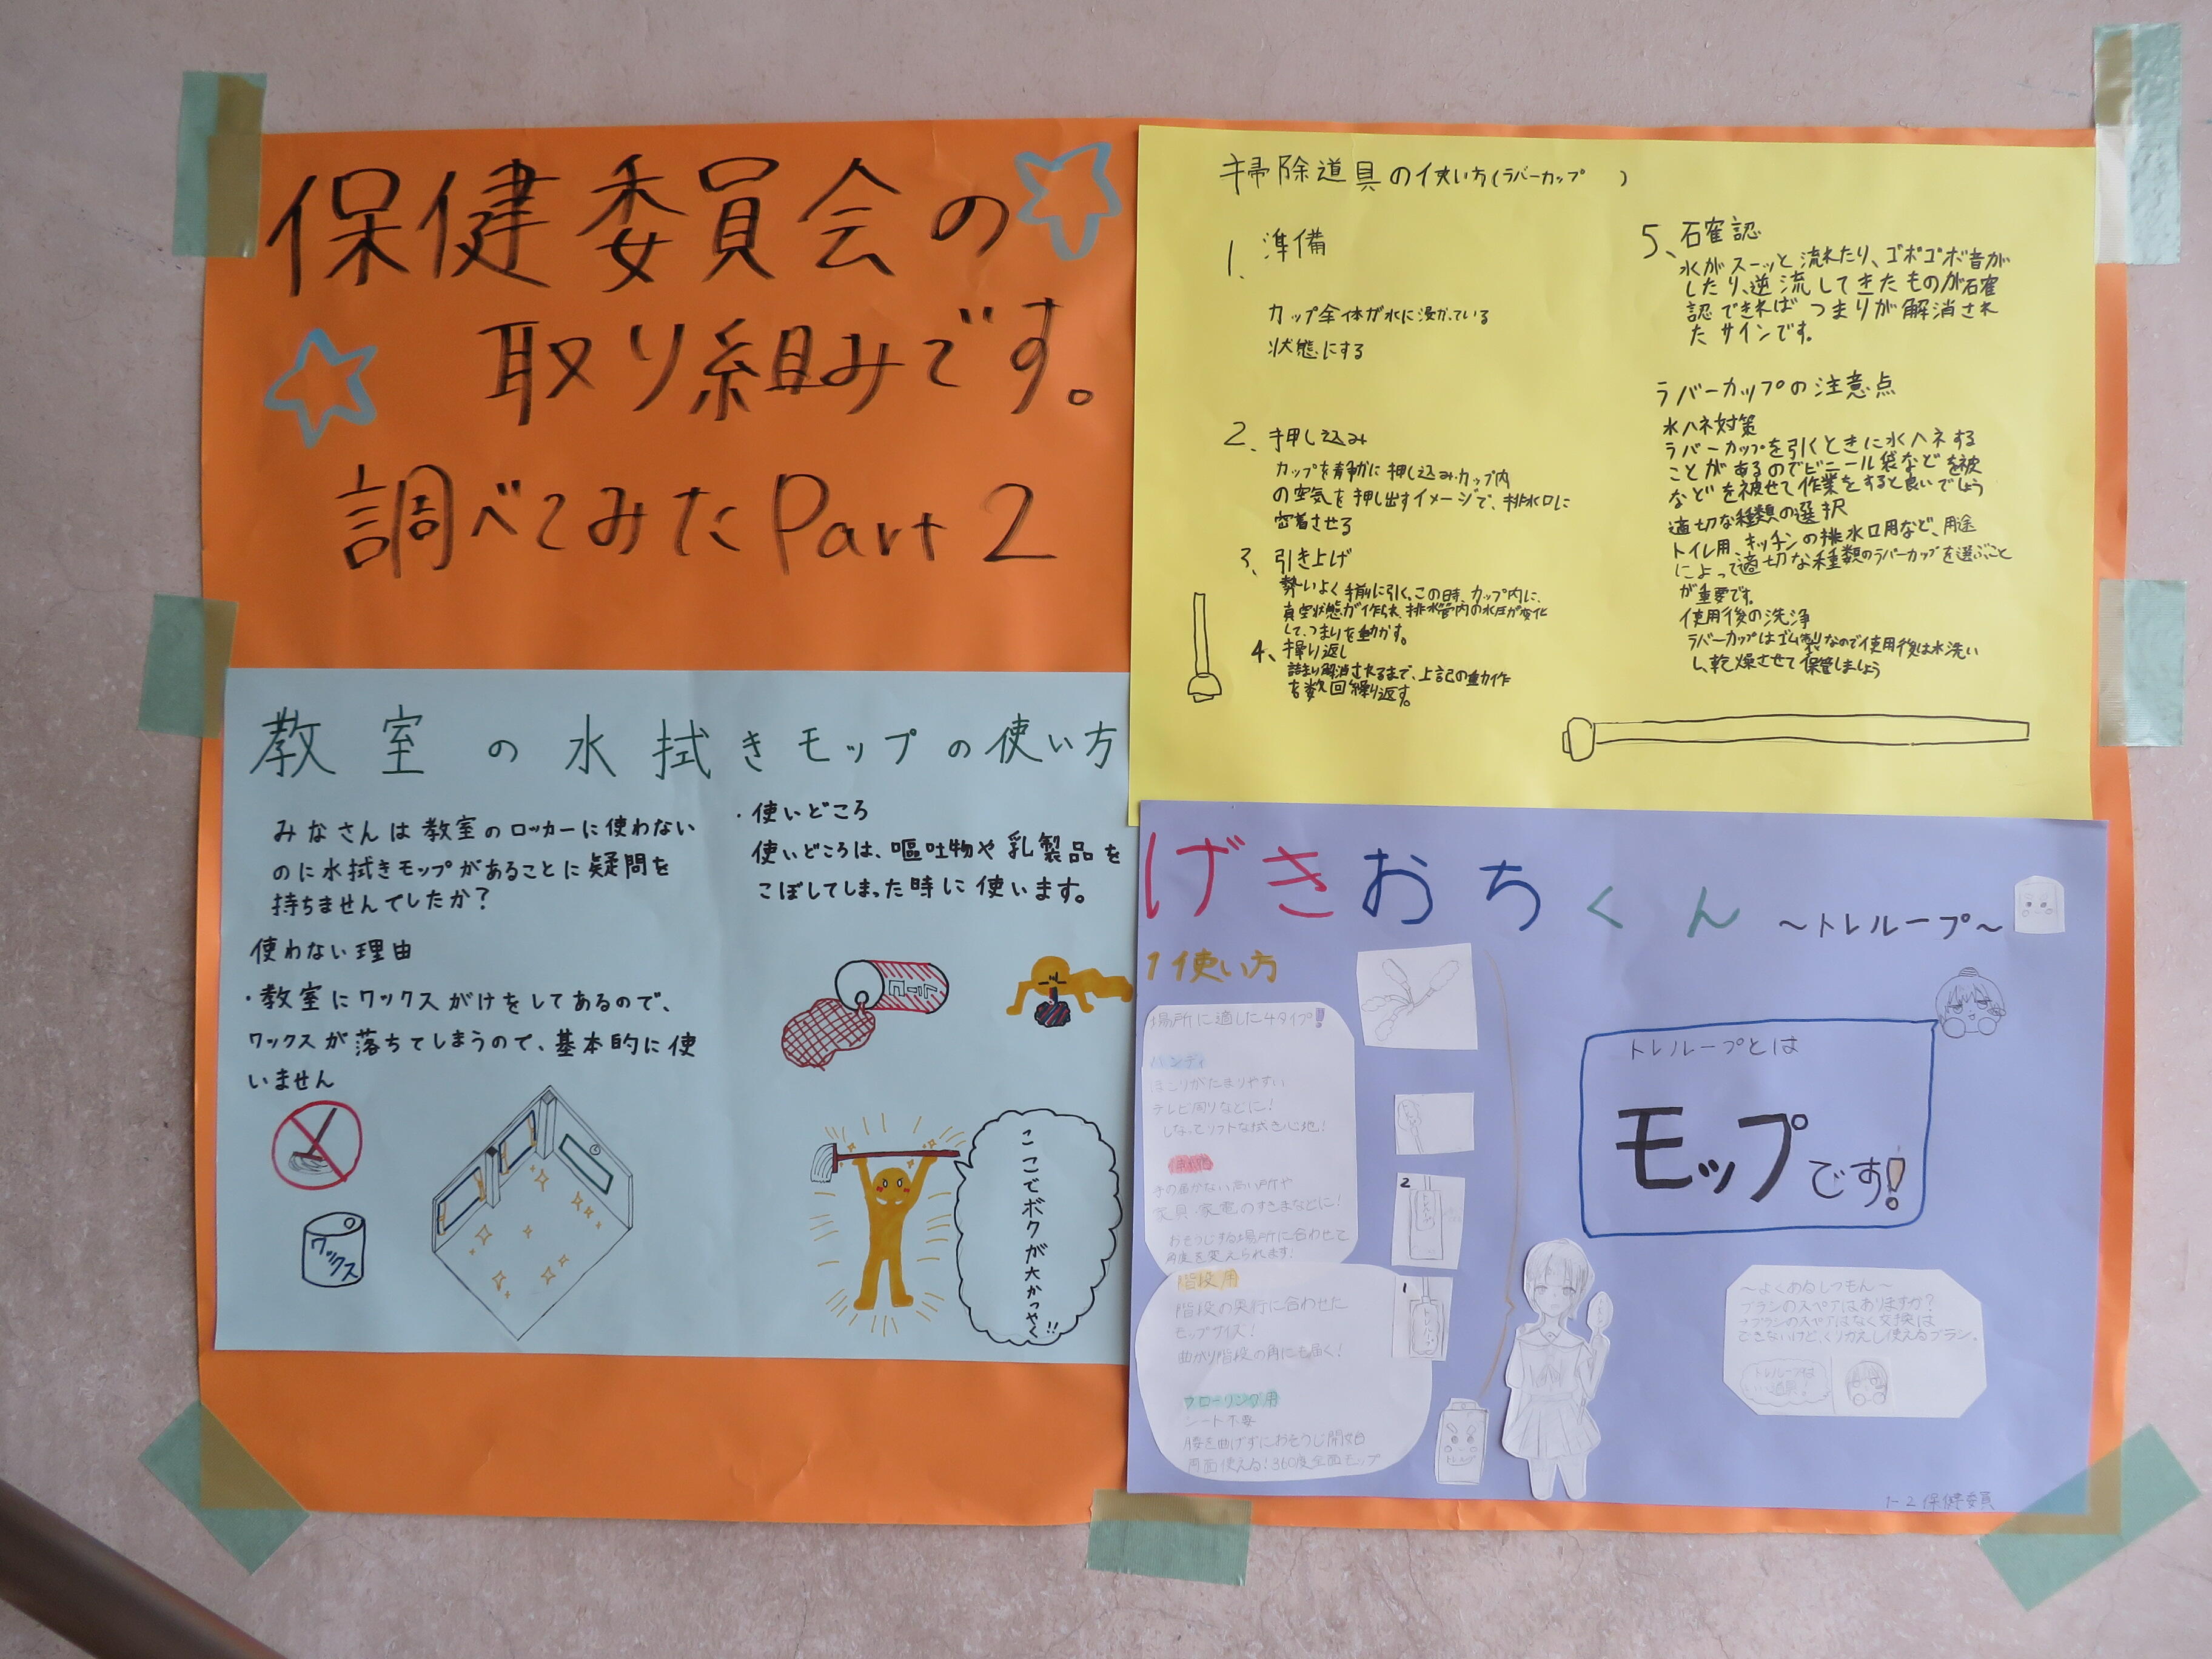 保健委員会の
取り組みです。
調べてみた Part 2
掃除道具の使い方(ラバーカップ )
1、準備
カップ全体が水に浸かっている
状態にする
2、押し込み
カップを静かに押し込みカップ内
の空気を押し出すイメージで、排水口に
密着させる
3、引き上げ
勢いよく手前に引く、この時、カップ内に、
真空状態が作られ、排水管内の水圧が変化
して、つまりを動かす。
4、繰り返し
詰まり解消されるまで、上記の動作
を数回繰り返す。
5、確認
水がスーッと流れたり、ゴボゴボ音が
したり、逆流してきたものが確
認できれば つまりが解消され
た サインです。
ラバーカップの注意点
水ハネ対策
ラバーカップを引くときに水ハネする
ことがあるのでビニール袋などを被
などを被せて作業をすると良いでしょう
適切な種類の選択
トイレ用、キッチンの排水口用など、用途
によって適切な種類のラバーカップを選ぶこと
が重要です。
使用後の洗浄
ラバーカップはゴム製なので使用後は水洗い
し、乾燥させて保管しましょう
教室の水拭きモップの使い方
みなさんは教室のロッカーに使わない
のに水拭きモップがあることに疑問を
持ちませんでしたか?
使わない理由
・教室にワックスがけをしてあるので、
ワックスが落ちてしまうので、基本的に使
いません
ワックス
・使いどころ
使いどころは、嘔吐物や乳製品を
こぼしてしまった時に使います。
ここでボクが大かつやく!!
げきおちくん ~トレループ~
1 使い方
場所に適した4タイプ!!
ハンディ
ほこりがたまりやすい
テレビ周りなどに!
しなってソフトな拭き心地!
手の届かない高い所や
家具・家電のすきまなどに!
おそうじする場所に合わせて
角度を変えられます!
階段用
階段の奥行に合わせた
モップサイズ!
曲がり階段の角にも届く!
フローリング用
シート不要
腰を曲げずにおそうじ開始
両面使える!360度全面モップ
2
1
トレループとは
モップです!
~よくあるしつもん~
ブラシのスペアはありますか?
→ブラシのスペアはなく交換は
できないけど、くりかえし使えるブラシ。
トレループは
1-2 保健委員